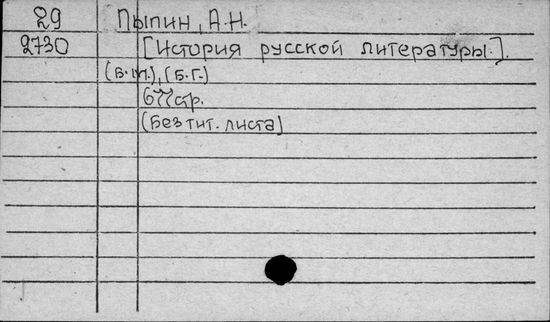 29 Пыпин, А.Н.
2730 [История русской литературы.].
(Б.м.), (Б.Г.)
677стр.
(Без тит. листа)